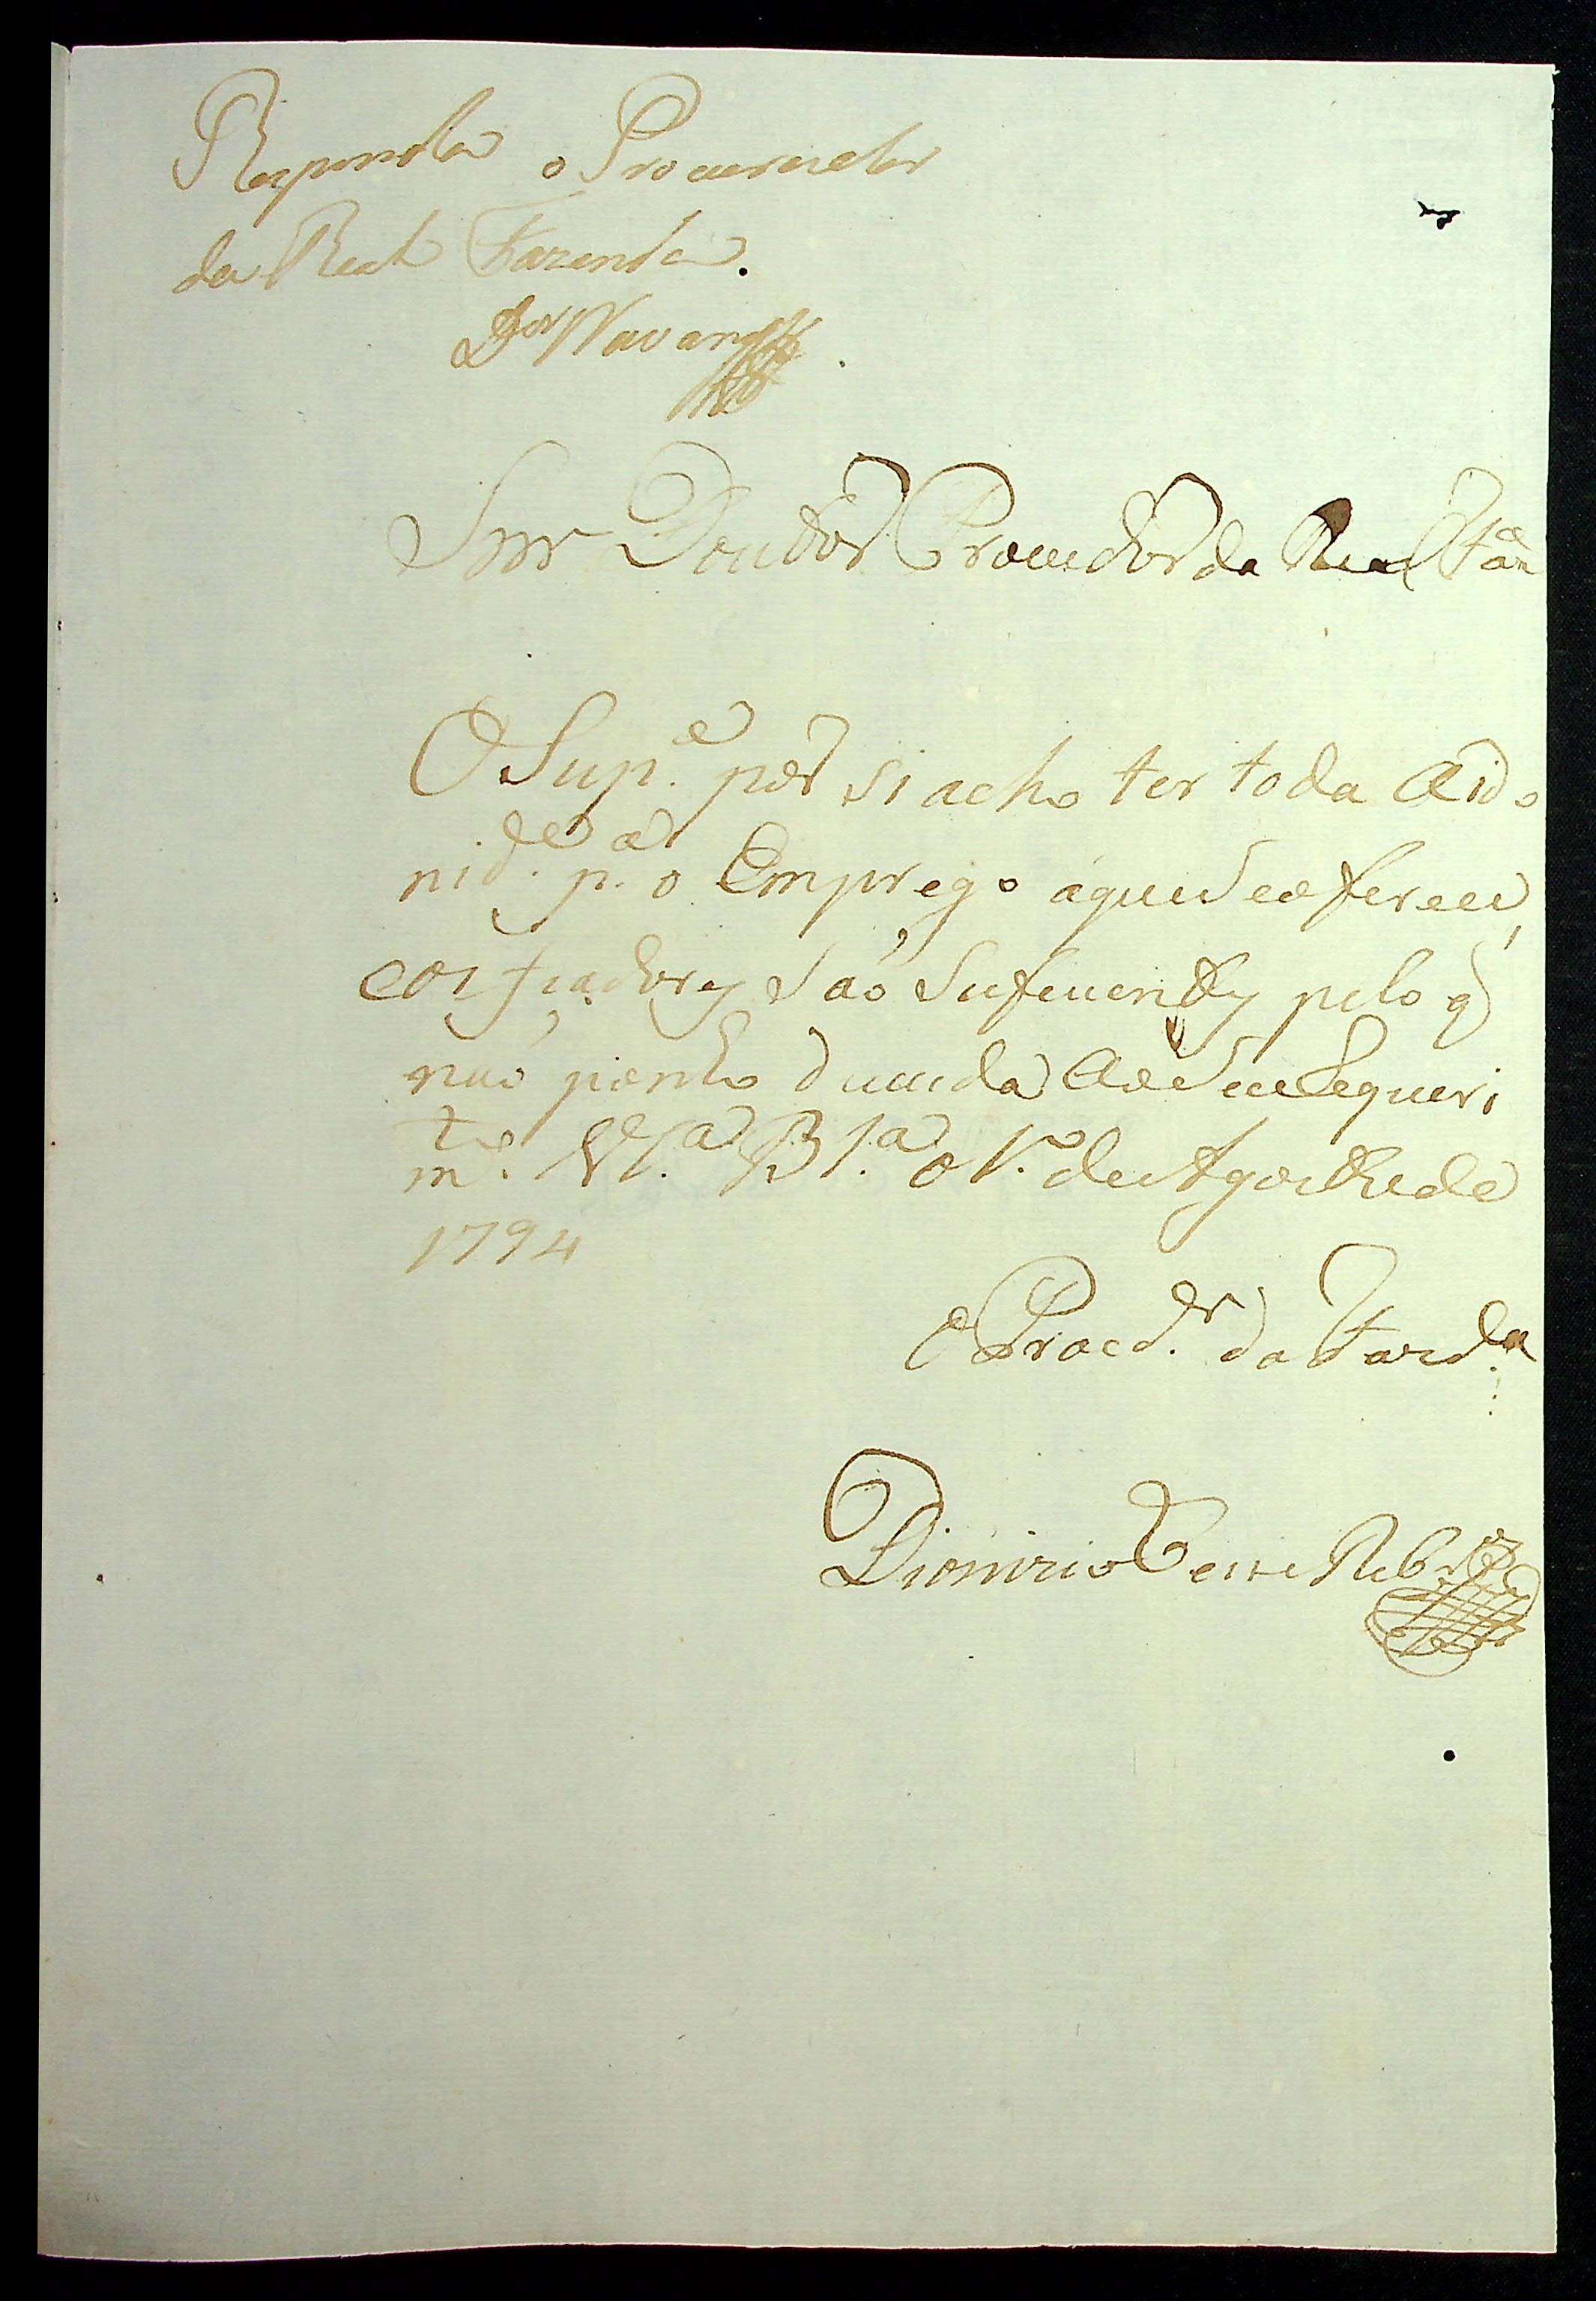 Responda o Procurador
da Real Fazenda.
D.or Navarro
Snr Doutor Provedor da Real Faz.a
O Sup.e por si acho ter toda a ido
nid.de p.a o Emprego aque se oferece,
e os fiadores são Suficientes pelo q̃
não ponho duvida ao seu Requeri
m.to V.a B.a o 1.o de Agosto de
1794
O Procd.or da Fazd.a
Dionizio Rib.ro